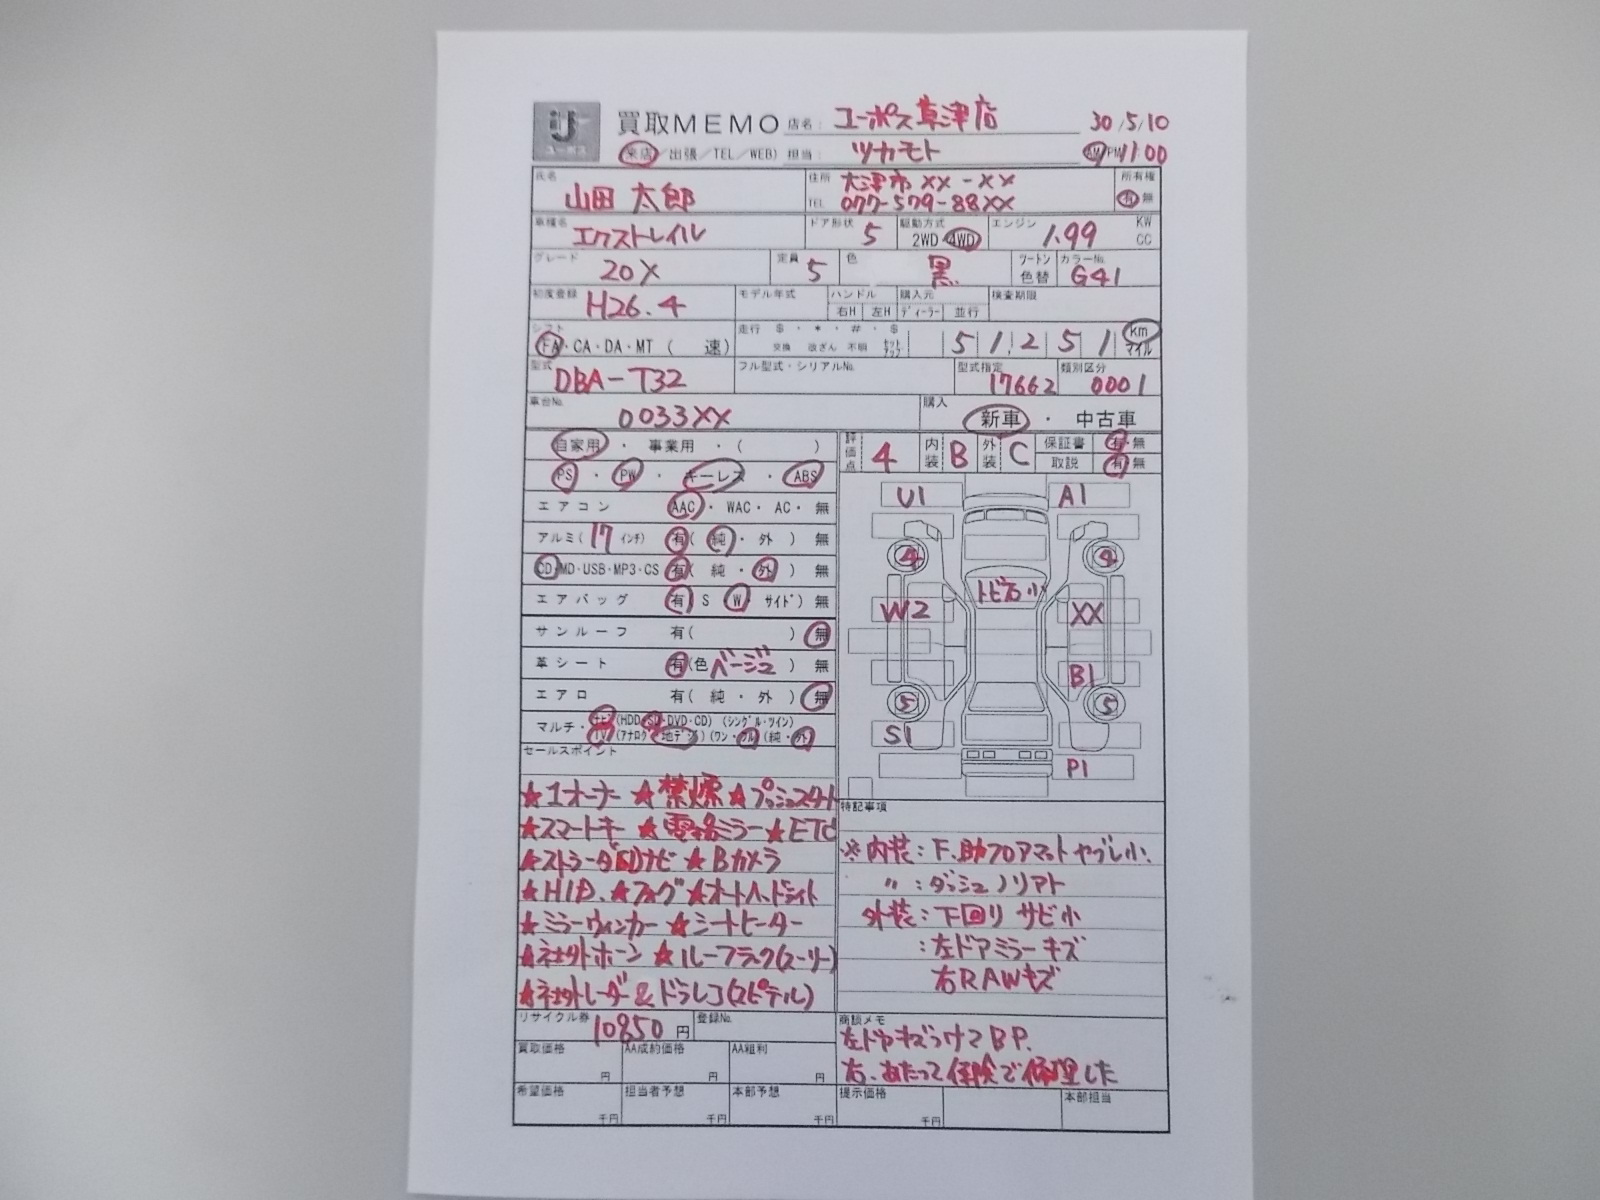 U ユーポス 買取MEMO 店名: ユーポス草津店 30/5/10
(来店/出張/TEL/WEB) 担当: ツカモト AM/PM 11:00
氏名 山田 太郎 住所 大津市XX-XX 所有権
TEL 077-579-88XX 有 無
車種名 エクストレイル ドア形状 5 駆動方式 2WD 4WD エンジン 1.99 KW CC
グレード 20X 定員 5 色 黒 ツートン 色替 カラーNo. G41
初度登録 H26.4 モデル年式 ハンドル 右H 左H 購入元 ディーラー 並行 検査期限
シフト FA・CA・DA・MT ( 速) 走行 $ ・ * ・ # ・ $ 交換 改ざん 不明 51,251 km マイル
型式 DBA-T32 フル型式・シリアルNo. 型式指定 17662 類別区分 0001
車台No. 0033XX 購入 新車 ・ 中古車
自家用 ・ 事業用 ・ ( ) 評価点 4 内装 B 外装 C 保証書 有・無
取説 有 無
PS ・ PW ・ キーレス ・ ABS
エアコン AAC・ WAC・ AC・ 無
アルミ( 17 インチ) 有( 純・ 外 ) 無
CD・MD・USB・MP3・CS 有( 純・ 外 ) 無
エアバッグ 有( S W サイド) 無
サンルーフ 有( ) 無
革シート 有(色 ベージュ ) 無
エアロ 有( 純 ・ 外 ) 無
マルチ・ ナビ (HDD・SD・DVD・CD) (シングル・ツイン)
TV (アナログ・地デジ) (ワン・フル) (純・外)
U1 A1
4 4
トビ石 小
W2 XX
B1
5 5
S1
P1
セールスポイント
★1オーナー ★禁煙 ★プッシュスタート
★スマートキー ★電格ミラー ★ETC
★ストラーダSDナビ ★Bカメラ
★HID. ★フォグ ★オートヘッドライト
★ミラーウィンカー ★シートヒーター
★社外ホーン ★ルーフラック(スーリー)
★社外レーダー&ドラレコ(ユピテル)
特記事項
※内装: 下.助フロアマットヤブレ小.
〃 :ダッシュノリアト
外装: 下回り サビ小
:左ドアミラーキズ
右RAWキズ
リサイクル券 10850 円 登録No.
商談メモ
左ドアキズつけてBP.
右、あたって保険で修理した
買取価格 円 AA成約価格 円 AA粗利 円
希望価格 千円 担当者予想 千円 本部予想 千円 提示価格 千円 本部担当